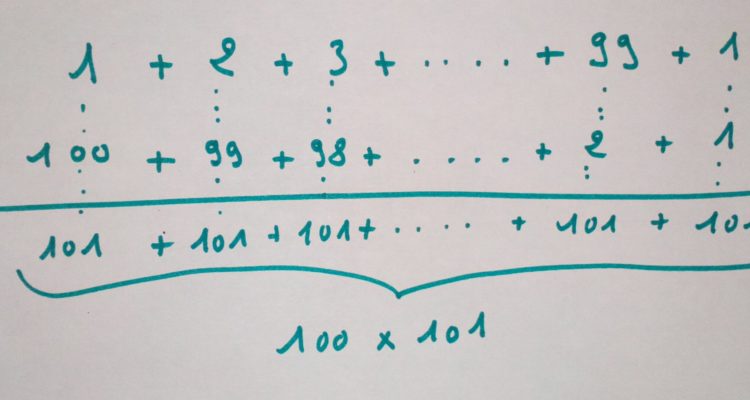 1 + 2 + 3 + ..... + 99 + 1
100 + 99 + 98 + ..... + 2 + 1
101 + 101 + 101 + ..... + 101 + 101
100 x 101